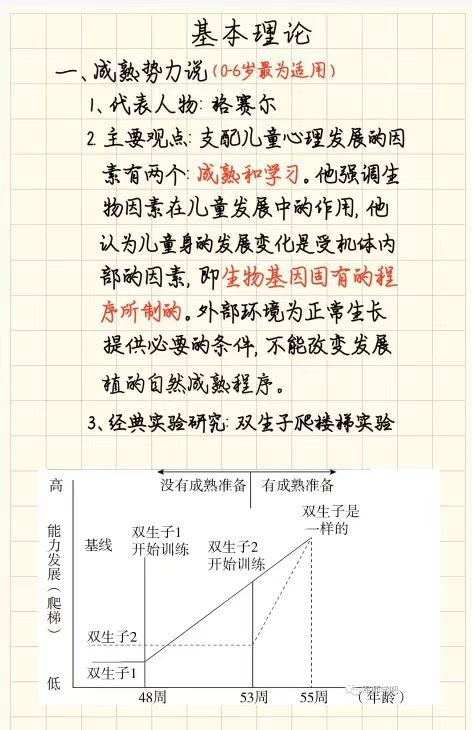 基本理论
一、成熟势力说(0-6岁最为适用)
1、代表人物:格赛尔
2 主要观点:支配儿童心理发展的因
素有两个:成熟和学习。他强调生
物因素在儿童发展中的作用,他
认为儿童身的发展变化是受机体内
部的因素,即生物基因固有的程
序所制的。外部环境为正常生长
提供必要的条件,不能改变发展
植的自然成熟程序。
3、经典实验研究:双生子爬楼梯实验
没有成熟准备 有成熟准备
高
能力发展(爬梯)
低
基线
双生子1
开始训练
双生子2
开始训练
双生子是
一样的
双生子2
双生子1
48周 53周 55周 (年龄)